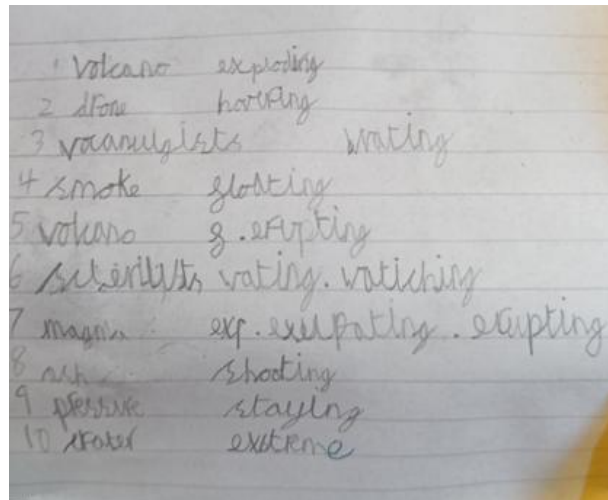 1 Volcano exploding
2 drone hovering
3 vocanulgists wating
4 smoke floating
5 volcano g.erupting
6 vating. watiching
7 magma exp. exeupating. erupting
8 ash shooting
9 pressure staying
10 crater extreme